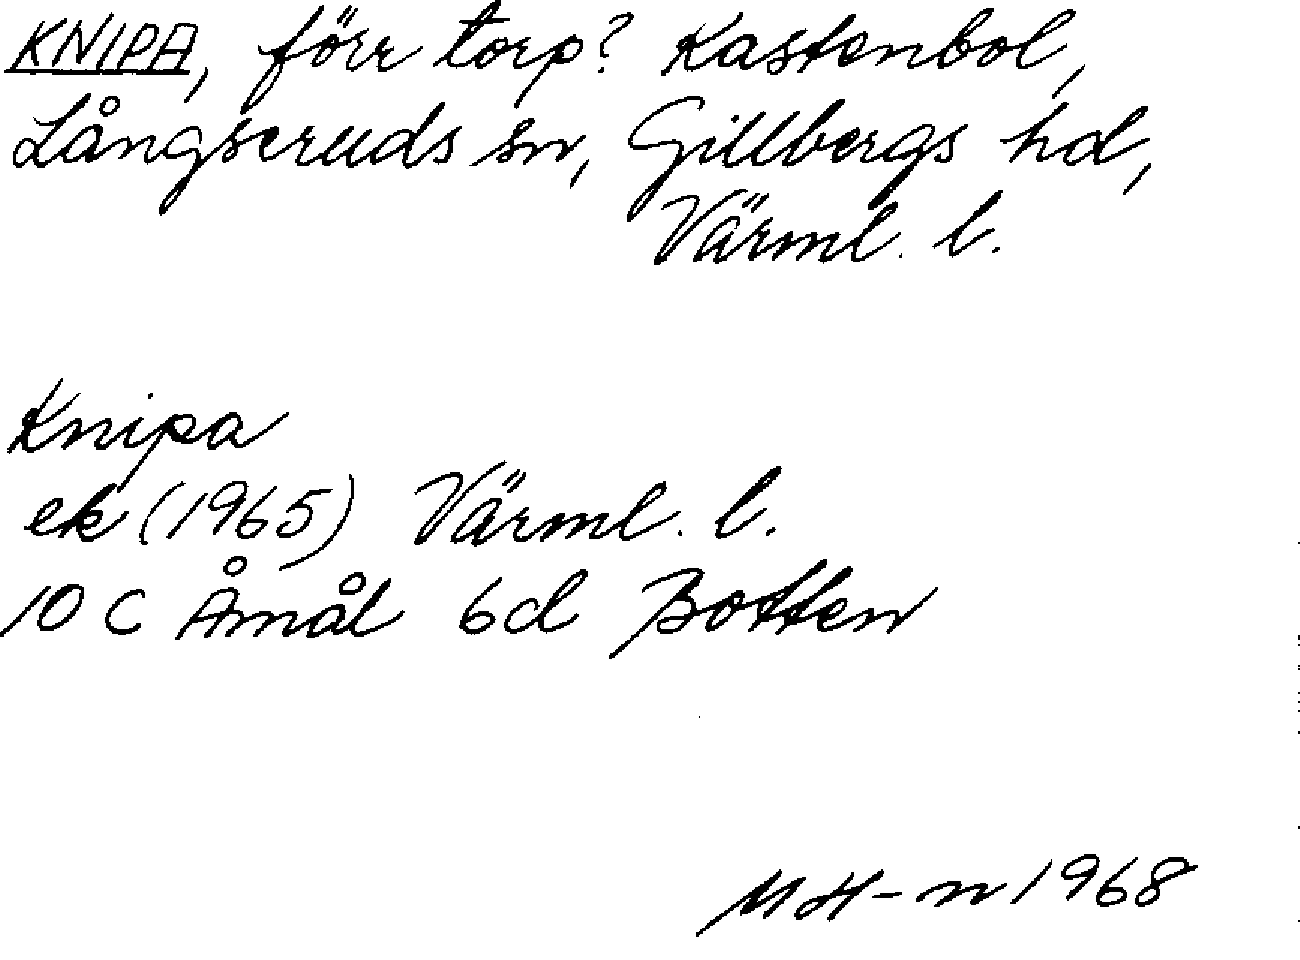 KNIPA, förr torp? Kastenbol,
Långseruds sn, Gillbergs hd,
Värml. l.
Knipa
ek (1965) Värml. l.
10 C Åmål 6d Botten
MH-n 1968